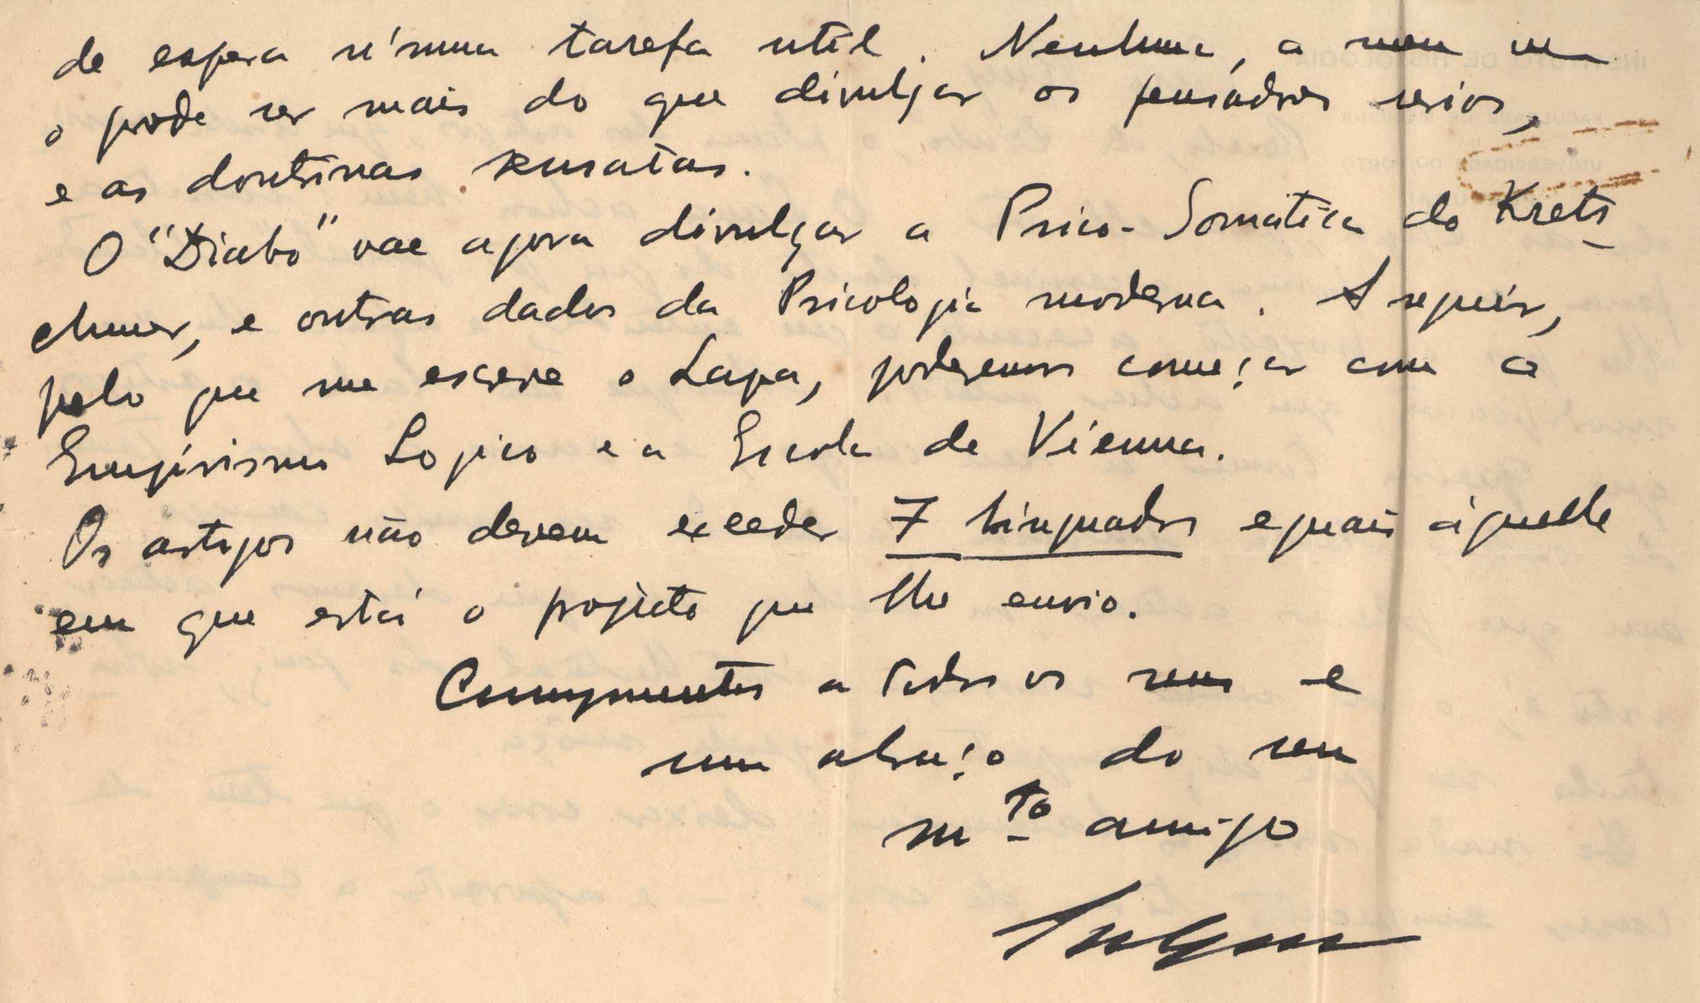 de espera n'uma tarefa util. Nenhuma, a meu ver
o pode ser mais do que divulgar os pensadores serios,
e as doutrinas sensatas.
O "Diabo" vae agora divulgar a Psico-Somática do Krets
chmer, e outros dados da Psicologia moderna. A seguir,
pelo que me escreve o Lapa, poderemos começar com o
Empirismo Logico e a Escola de Vienna.
Os artigos não devem exceder 7 linguados eguais áquelle
em que está o projecto que lhe envio.
Cumprimentos a todos os seus e
um abraço do seu
mto amigo